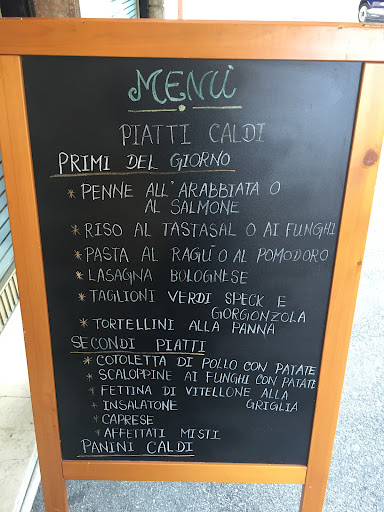 MENÙ
PIATTI CALDI
PRIMI DEL GIORNO
* PENNE ALL'ARABBIATA O
AL SALMONE
* RISO AL TASTASAL O AI FUNGHI
* PASTA AL RAGÙ O AL POMODORO
* LASAGNA BOLOGNESE
* TAGLIONI VERDI SPECK E
GORGIONZOLA
* TORTELLINI ALLA PANNA
SECONDI PIATTI
* COTOLETTA DI POLLO CON PATATE
* SCALOPPINE AI FUNGHI CON PATATE
* FETTINA DI VITELLONE ALLA
GRIGLIA
* INSALATONE
* CAPRESE
* AFFETTATI MISTI
PANINI CALDI